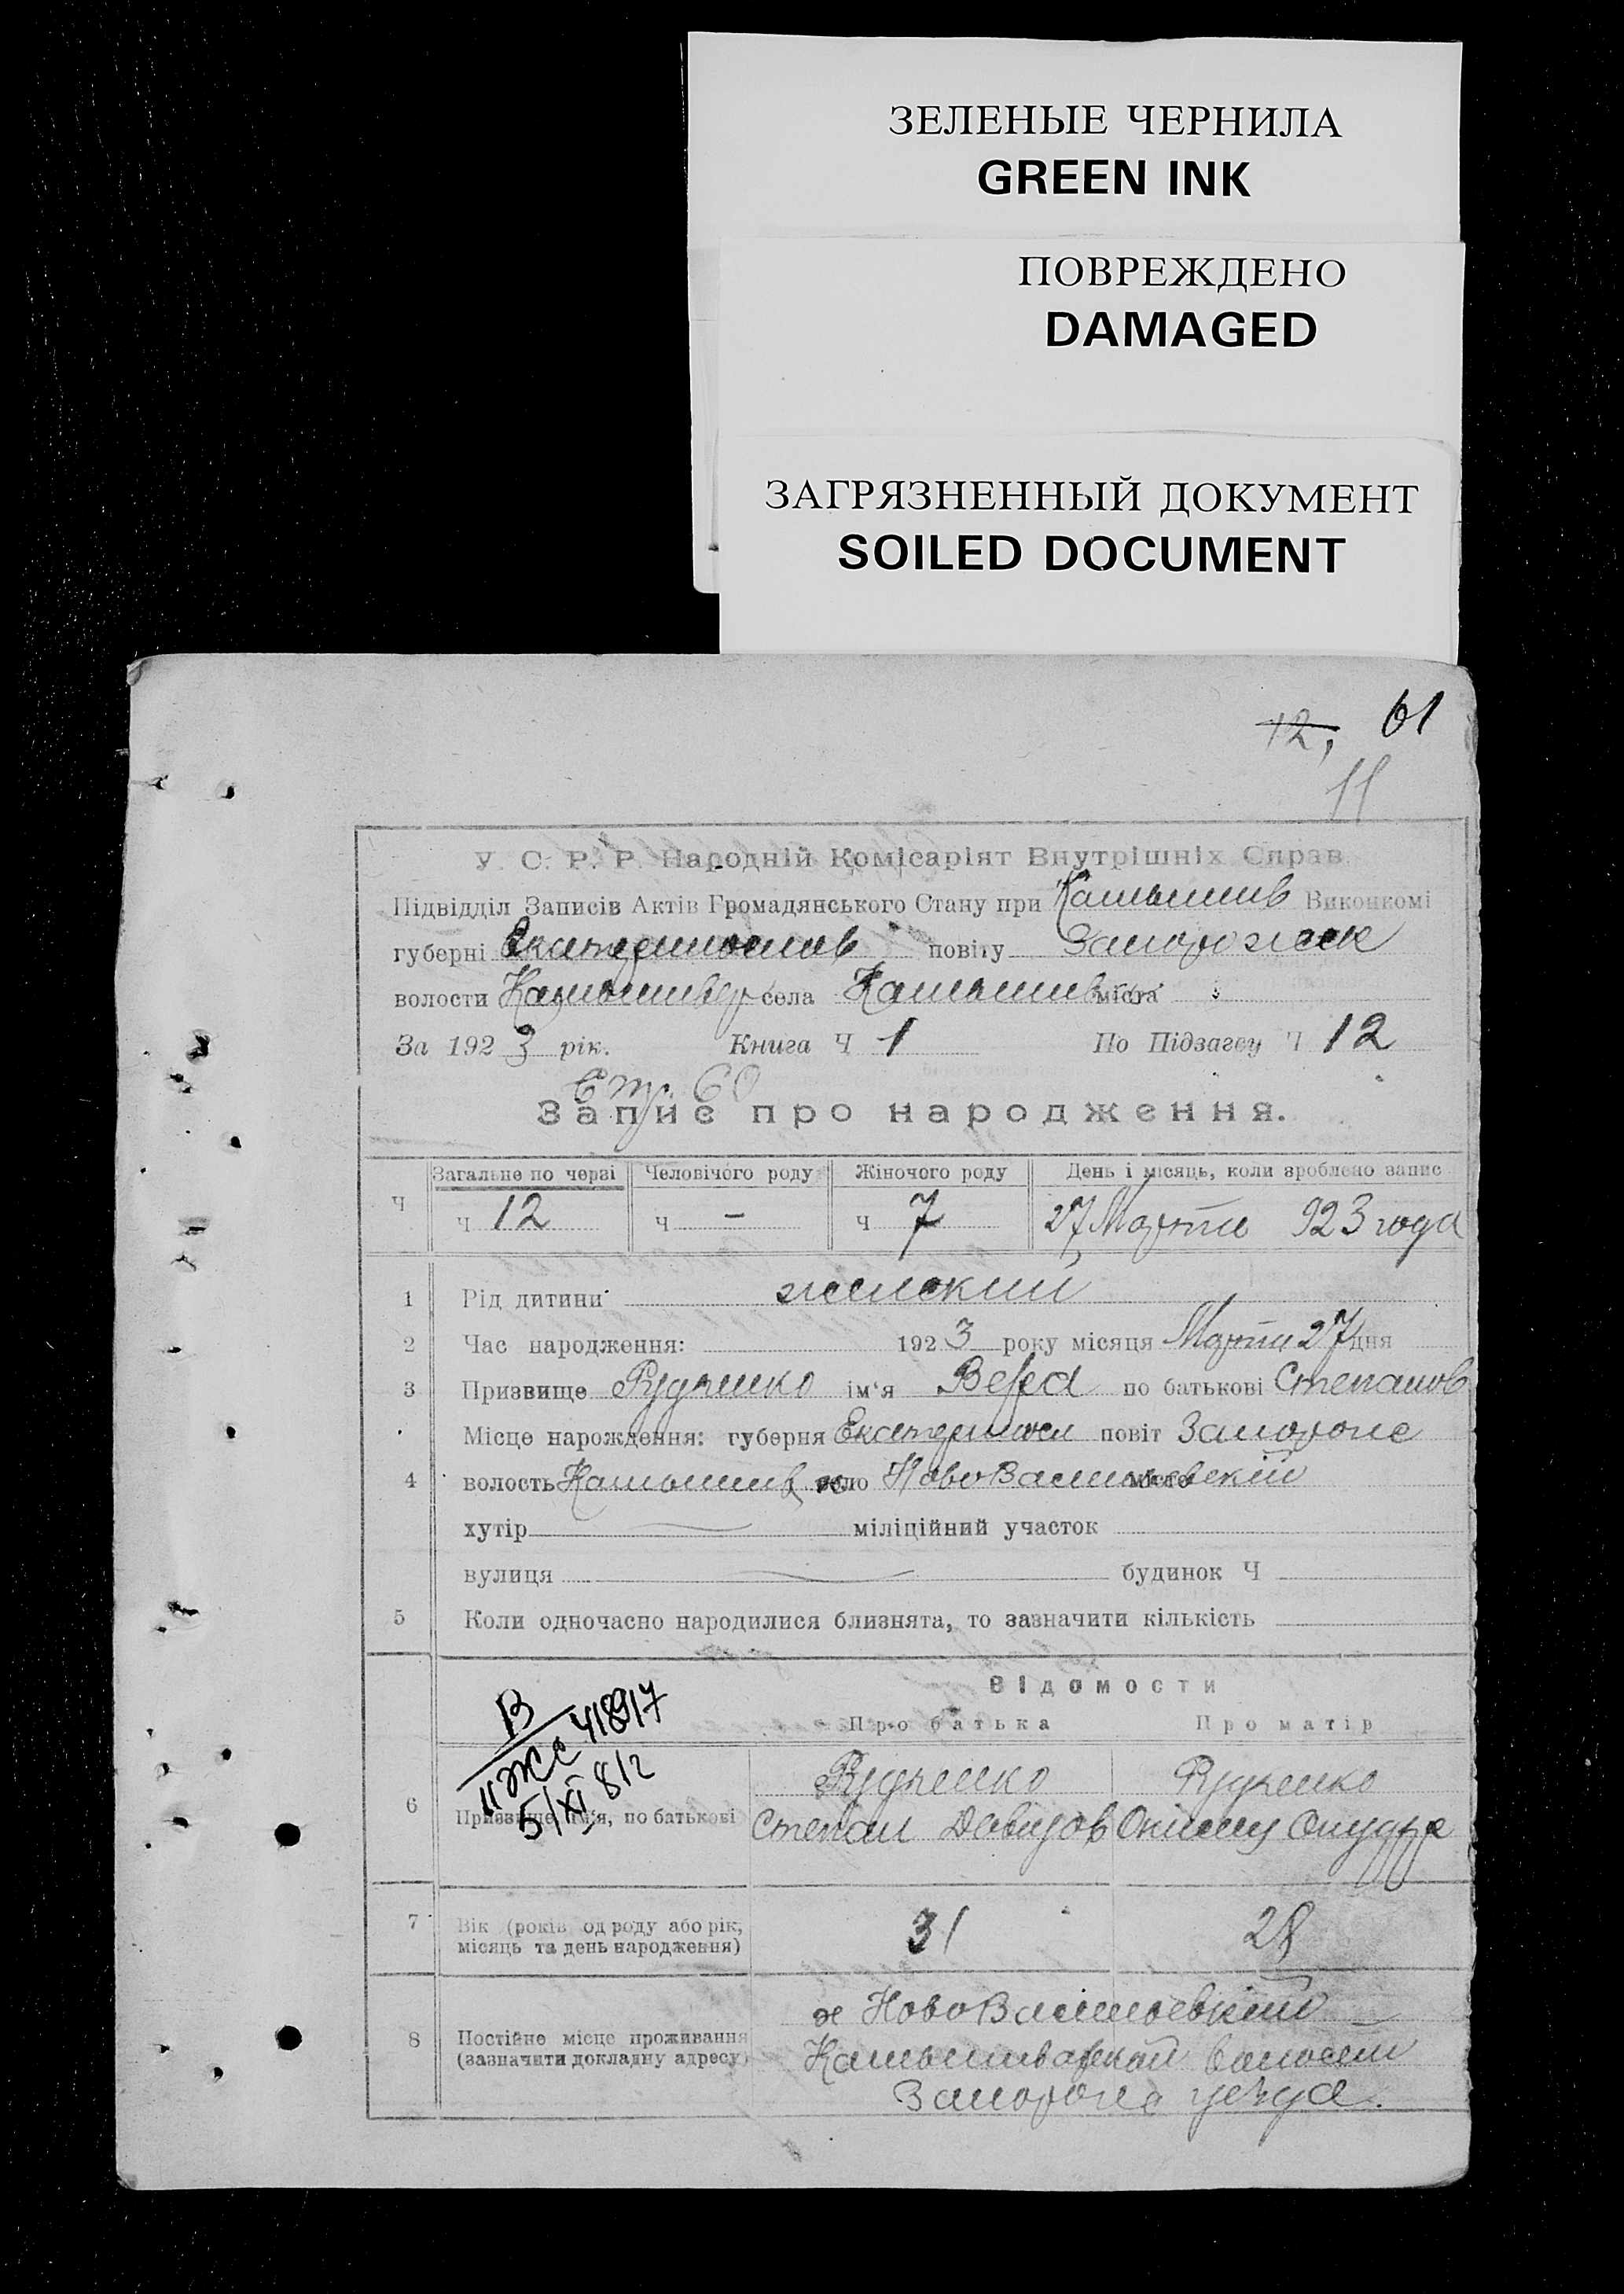 ЗЕЛЕНЫЕ ЧЕРНИЛА
GREEN INK
ПОВРЕЖДЕНО
DAMAGED
ЗАГРЯЗНЕННЫЙ ДОКУМЕНТ
SOILED DOCUMENT
12, 61
11
У. С. Р. Р. Народній Комісаріят Внутрішніх Справ
Підвідділ Записів Актів Громадянського Стану при Камышив Виконкомі
губерні Екатеринослав повіту Запорожск
волости села міста
За 1923 рік. Книга Ч 1 По Підзагсу Ч 12
Стр. 60
Запис про народження.
Загальне по черзі Человічого роду Жіночого роду День і місяць, коли зроблено запис
Ч Ч 12 Ч - Ч 7 27 Марта 923 года
1 Рід дитини женский
2 Час народження: 1923 року місяця Марта 27 дня
3 Призвище Руденко ім'я Вера по батькові Степанов
Місце народження: губерня Екатериносл повіт Запорож
4 волость Камышив село НовоВасильевский
хутір міліційний участок
вулиця будинок Ч
5 Коли одночасно народилися близнята, то зазначити кількість
Відомости
Про батька Про матір
В
5/XI 812
Руденко Руденко
6 Призвище, ім'я, по батькові Степан Давидов
7 Вік (років од роду або рік, 31 28
місяць та день народження)
х НовоВасильевский
8 Постійне місце проживання
(зазначити докладну адресу) Камышеватской волости
Запорож уезда.